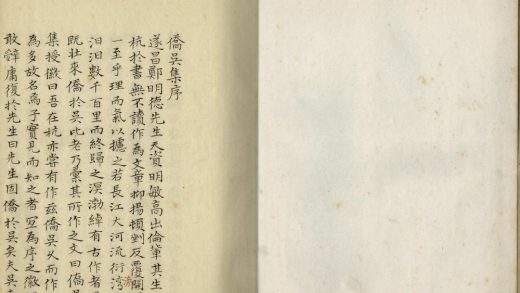 僑吳集序
遂昌鄭明德先生天資明敏高出倫輩其生
杭於書無不讀作為文章抑揚頓剉反覆開
一至乎理而氣以攄之若長江大河流衍灣
汩汩數千百里而終歸之溟渤綽有古作者
既壯來僑於吳比老乃彙其所作之文曰僑
集授徽曰吾在杭亦嘗有作茲僑吳久而作
為多故名焉子實見而知之者宜為序之徽
敢辭庸復於先生曰先生固僑於吳矣夫吳